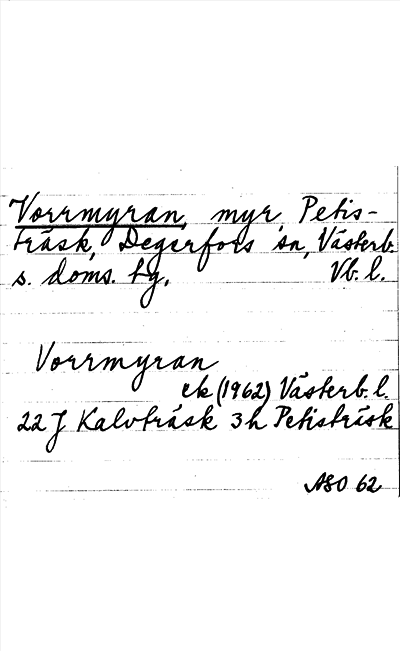 Vorrmyran, myr, Petis-
träsk, Degerfors sn, Västerb.
s. doms. tg, Vb. l.
Vorrmyran
ek (1962) Västerb. l.
22 J Kalvträsk 3h Petisträsk
ASO 62